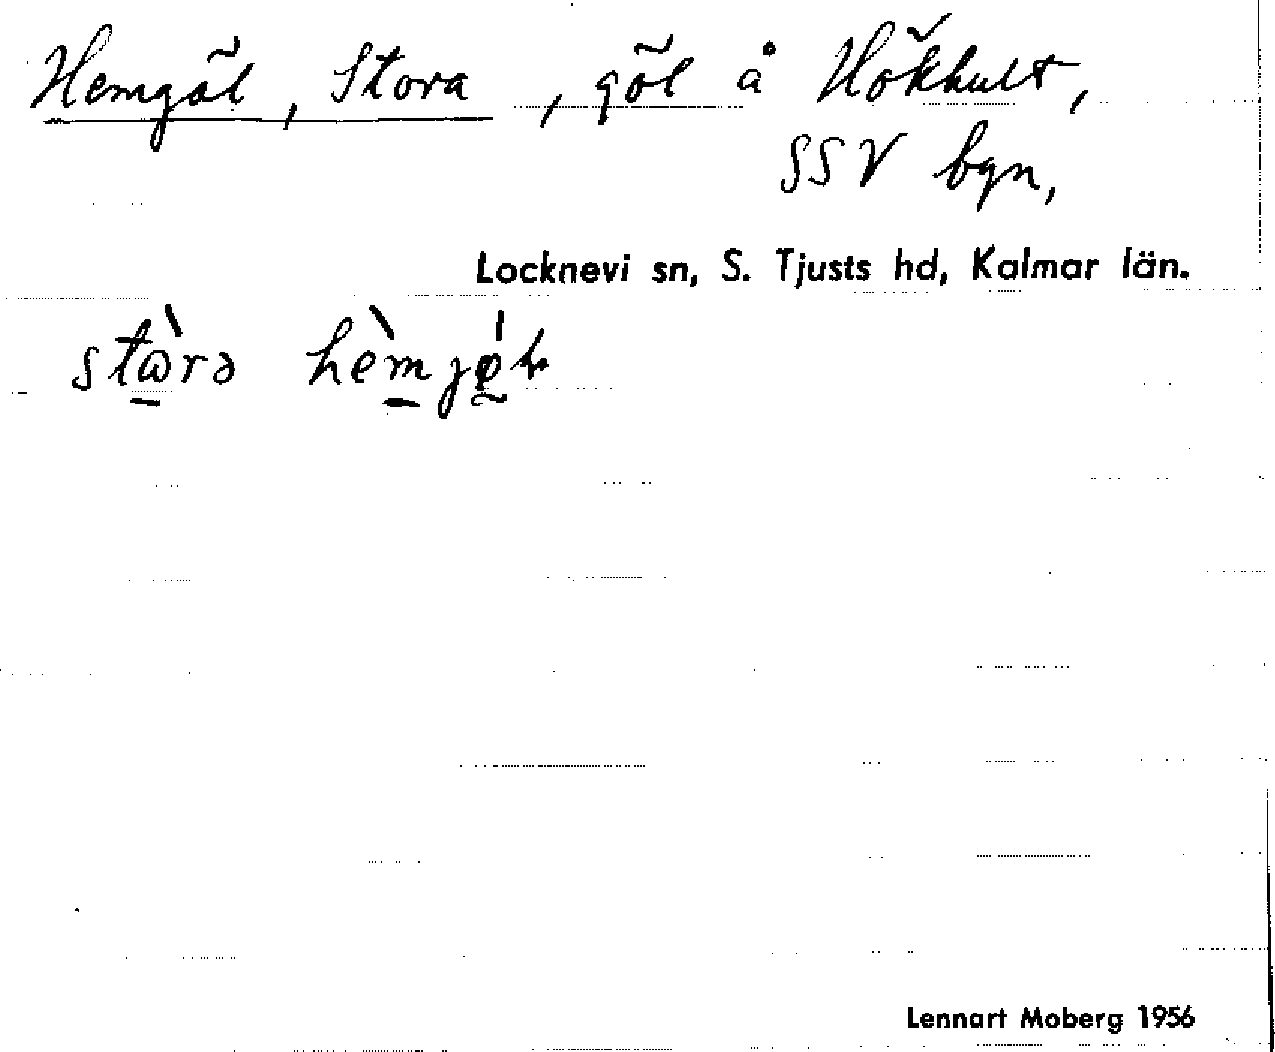 Hemgöl, Stora, göl å Hökhult,
SSV byn,
Locknevi sn, S. Tjusts hd, Kalmar län.
Lennart Moberg 1956